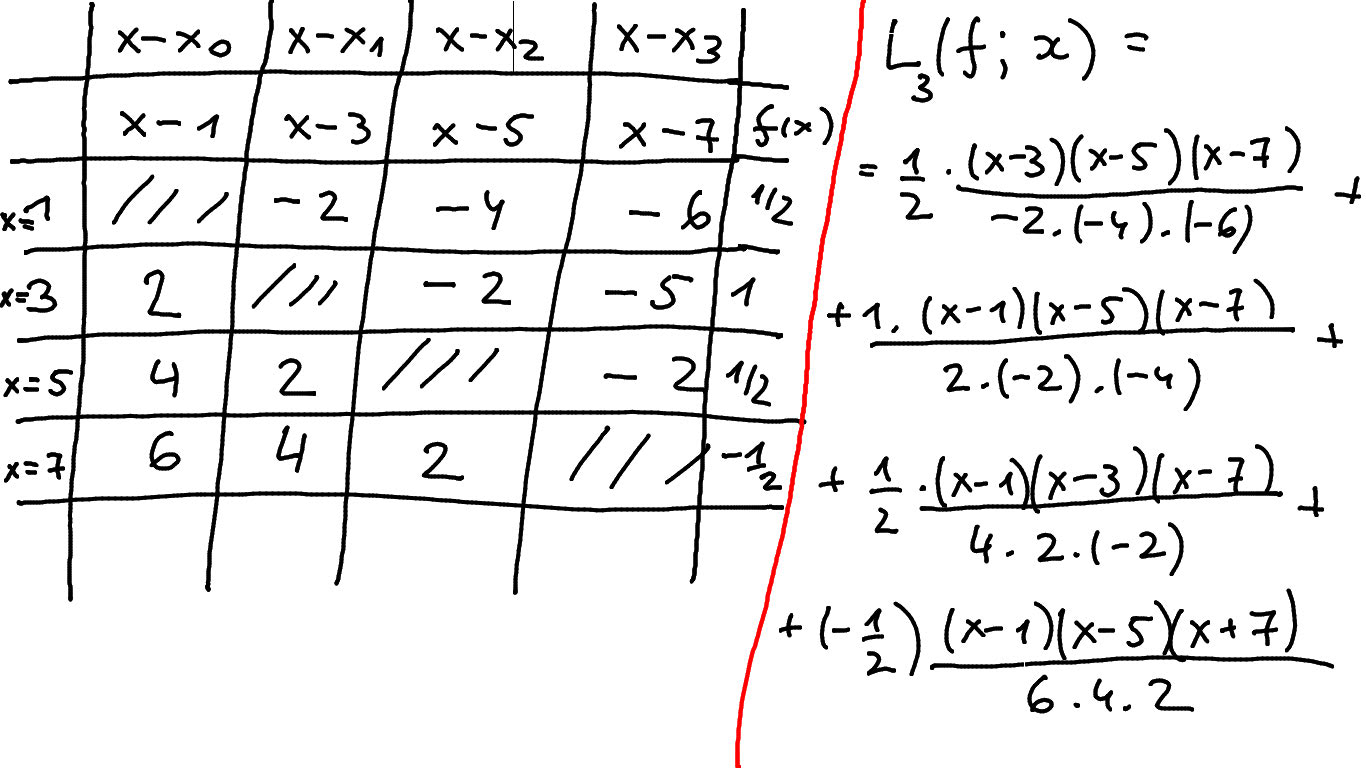 x-x₀ x-x₁ x-x₂ x-x₃
x-1 x-3 x-5 x-7 f(x)
x=1 /// -2 -4 -6 1/2
x=3 2 /// -2 -5 1
x=5 4 2 /// -2 1/2
x=7 6 4 2 /// -1/2
L₃(f; x) =
= 1/2 · (x-3)(x-5)(x-7) / -2·(-4)·(-6) +
+ 1· (x-1)(x-5)(x-7) / 2·(-2)·(-4) +
+ 1/2 · (x-1)(x-3)(x-7) / 4·2·(-2) +
+ (-1/2) (x-1)(x-5)(x+7) / 6·4·2